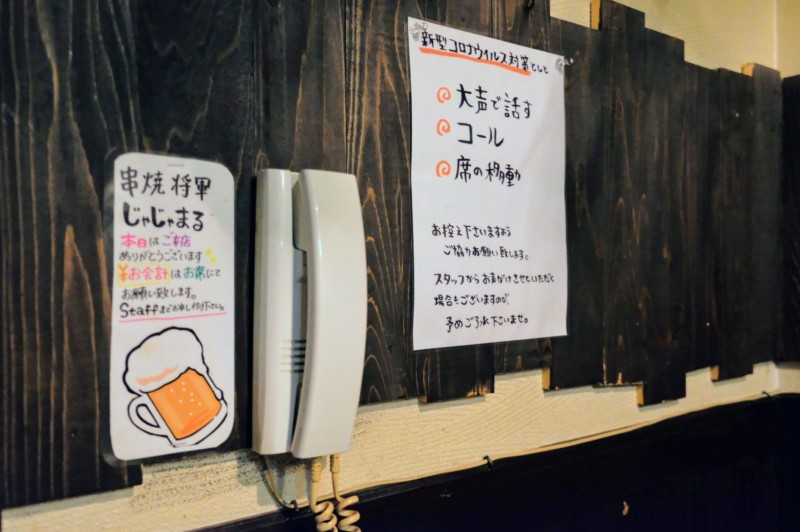 串焼 将軍
じゃじゃまる
本日はご来店
ありがとうございます
¥お会計はお席にて
お願い致します。
Staffまでお申し付け下さい。
新型コロナウイルス対策として
大声で話す
コール
席の移動
お控え下さいますよう
ご協力お願い致します。
スタッフからお声がけさせていただく
場合もございますので、
予めご了承下さいませ。